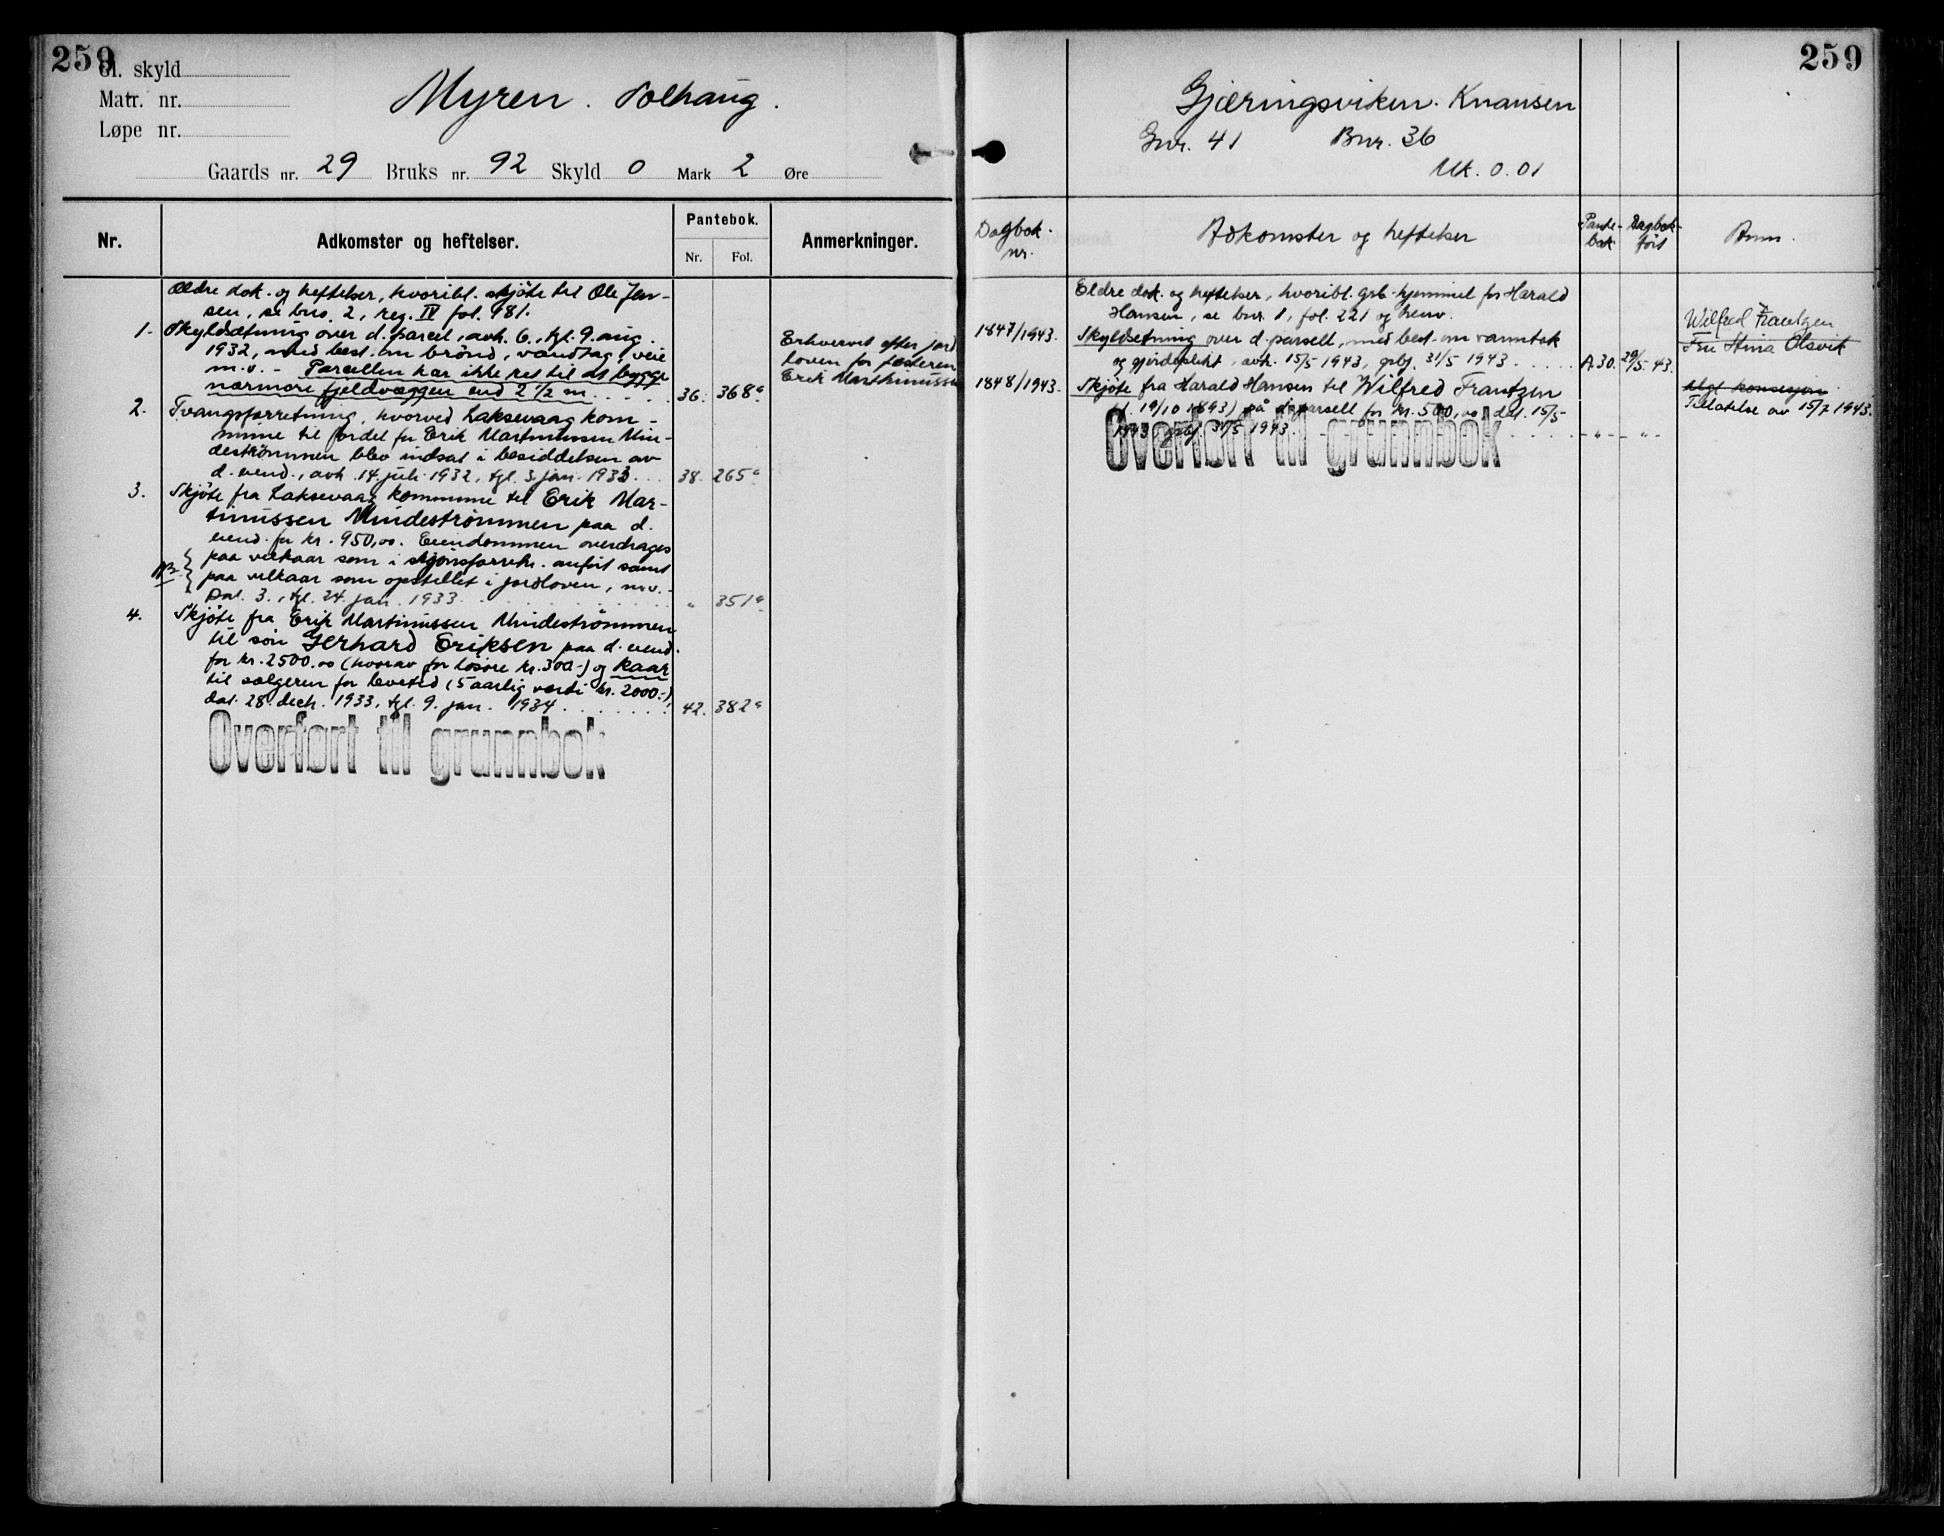 259
Gl. skyld
Matr. nr.
Løpe nr.
Myren. Solhaug.
Gaards nr. 29 Bruks nr. 92 Skyld 0 Mark 2 Øre
Nr.
Adkomster og heftelser.
Pantebok.
Nr. Fol.
Anmerkninger.
Ældre dok. og heftelser, hvoribl. skjøte til Ole Jen-
sen, se bno. 2, reg. IV fol. 981.
1. Skyldsætning over d. parcel, avh. 6., tgl. 9. aug.
1932, med best. om brønd, vandtag, veie
m.v. - Parcellen har ikke ret til at bygge
nærmere fjeldvæggen end 2 1/2 m. 36. 368a
Erhvervet efter jord
loven for fæsteren
Erik Marthinussen
2. Tvangsforretning, hvorved Laksevaag kom-
mune til fordel for Erik Martinussen Min-
destrømmen blev indsat i besiddelsen av
d. eiend., avh. 14. juli 1932, tgl. 3. jan. 1933. 38. 265a
3. Skjøte fra Laksevaag kommune til Erik Mar-
tinussen Mindestrømmen paa d.
eiend. for kr. 950,00. Eiendommen overdrages
paa vilkaar som i skjønsforretn. anført samt
NB. paa vilkaar som opstillet i jordloven, m.v. -
Dat. 3., tgl. 24. jan. 1933. " 351a
4. Skjøte fra Erik Martinussen Mindestrømmen
til søn Gerhard Eriksen paa d. eiend.
for kr. 2500.00 (hvorav for løsøre kr. 300.-) og kaar
til sælgeren for levetid (5 aarlig værdi kr. 2000.-),
dat. 28. decb. 1933, tgl. 9. jan. 1934. 42. 382a
Overført til grunnbok
259
Gjæringsviken. Knausen
Gnr. 41 Bnr. 36
Mk. 0.01
Dagbok-
nr.
Adkomster og heftelser
Pante-
bok
Dagbok-
ført
Anm.
Eldre dok. og heftelser, hvoribl. grb. hjemmel for Harald
Hansen, se bnr. 1, fol. 221 og henv.
1847/1943. Skyldsetning over d. parsell, med best. om vanntak
og gjerdeplikt, avh. 15/5 1943, grbj. 31/5 1943. A.30. 29/5-43.
Wilfred Frantzen
Fru Stina Olsvik
1848/1943. Skjøte fra Harald Hansen til Wilfred Frantzen
(f. 19/10 1893) på d. parsell for kr. 500,00, dat. 15/5
1943, grbj. 31/5 1943. - " - - " -
konsesjon
Tillatelse av 15/7 1943.
Overført til grunnbok